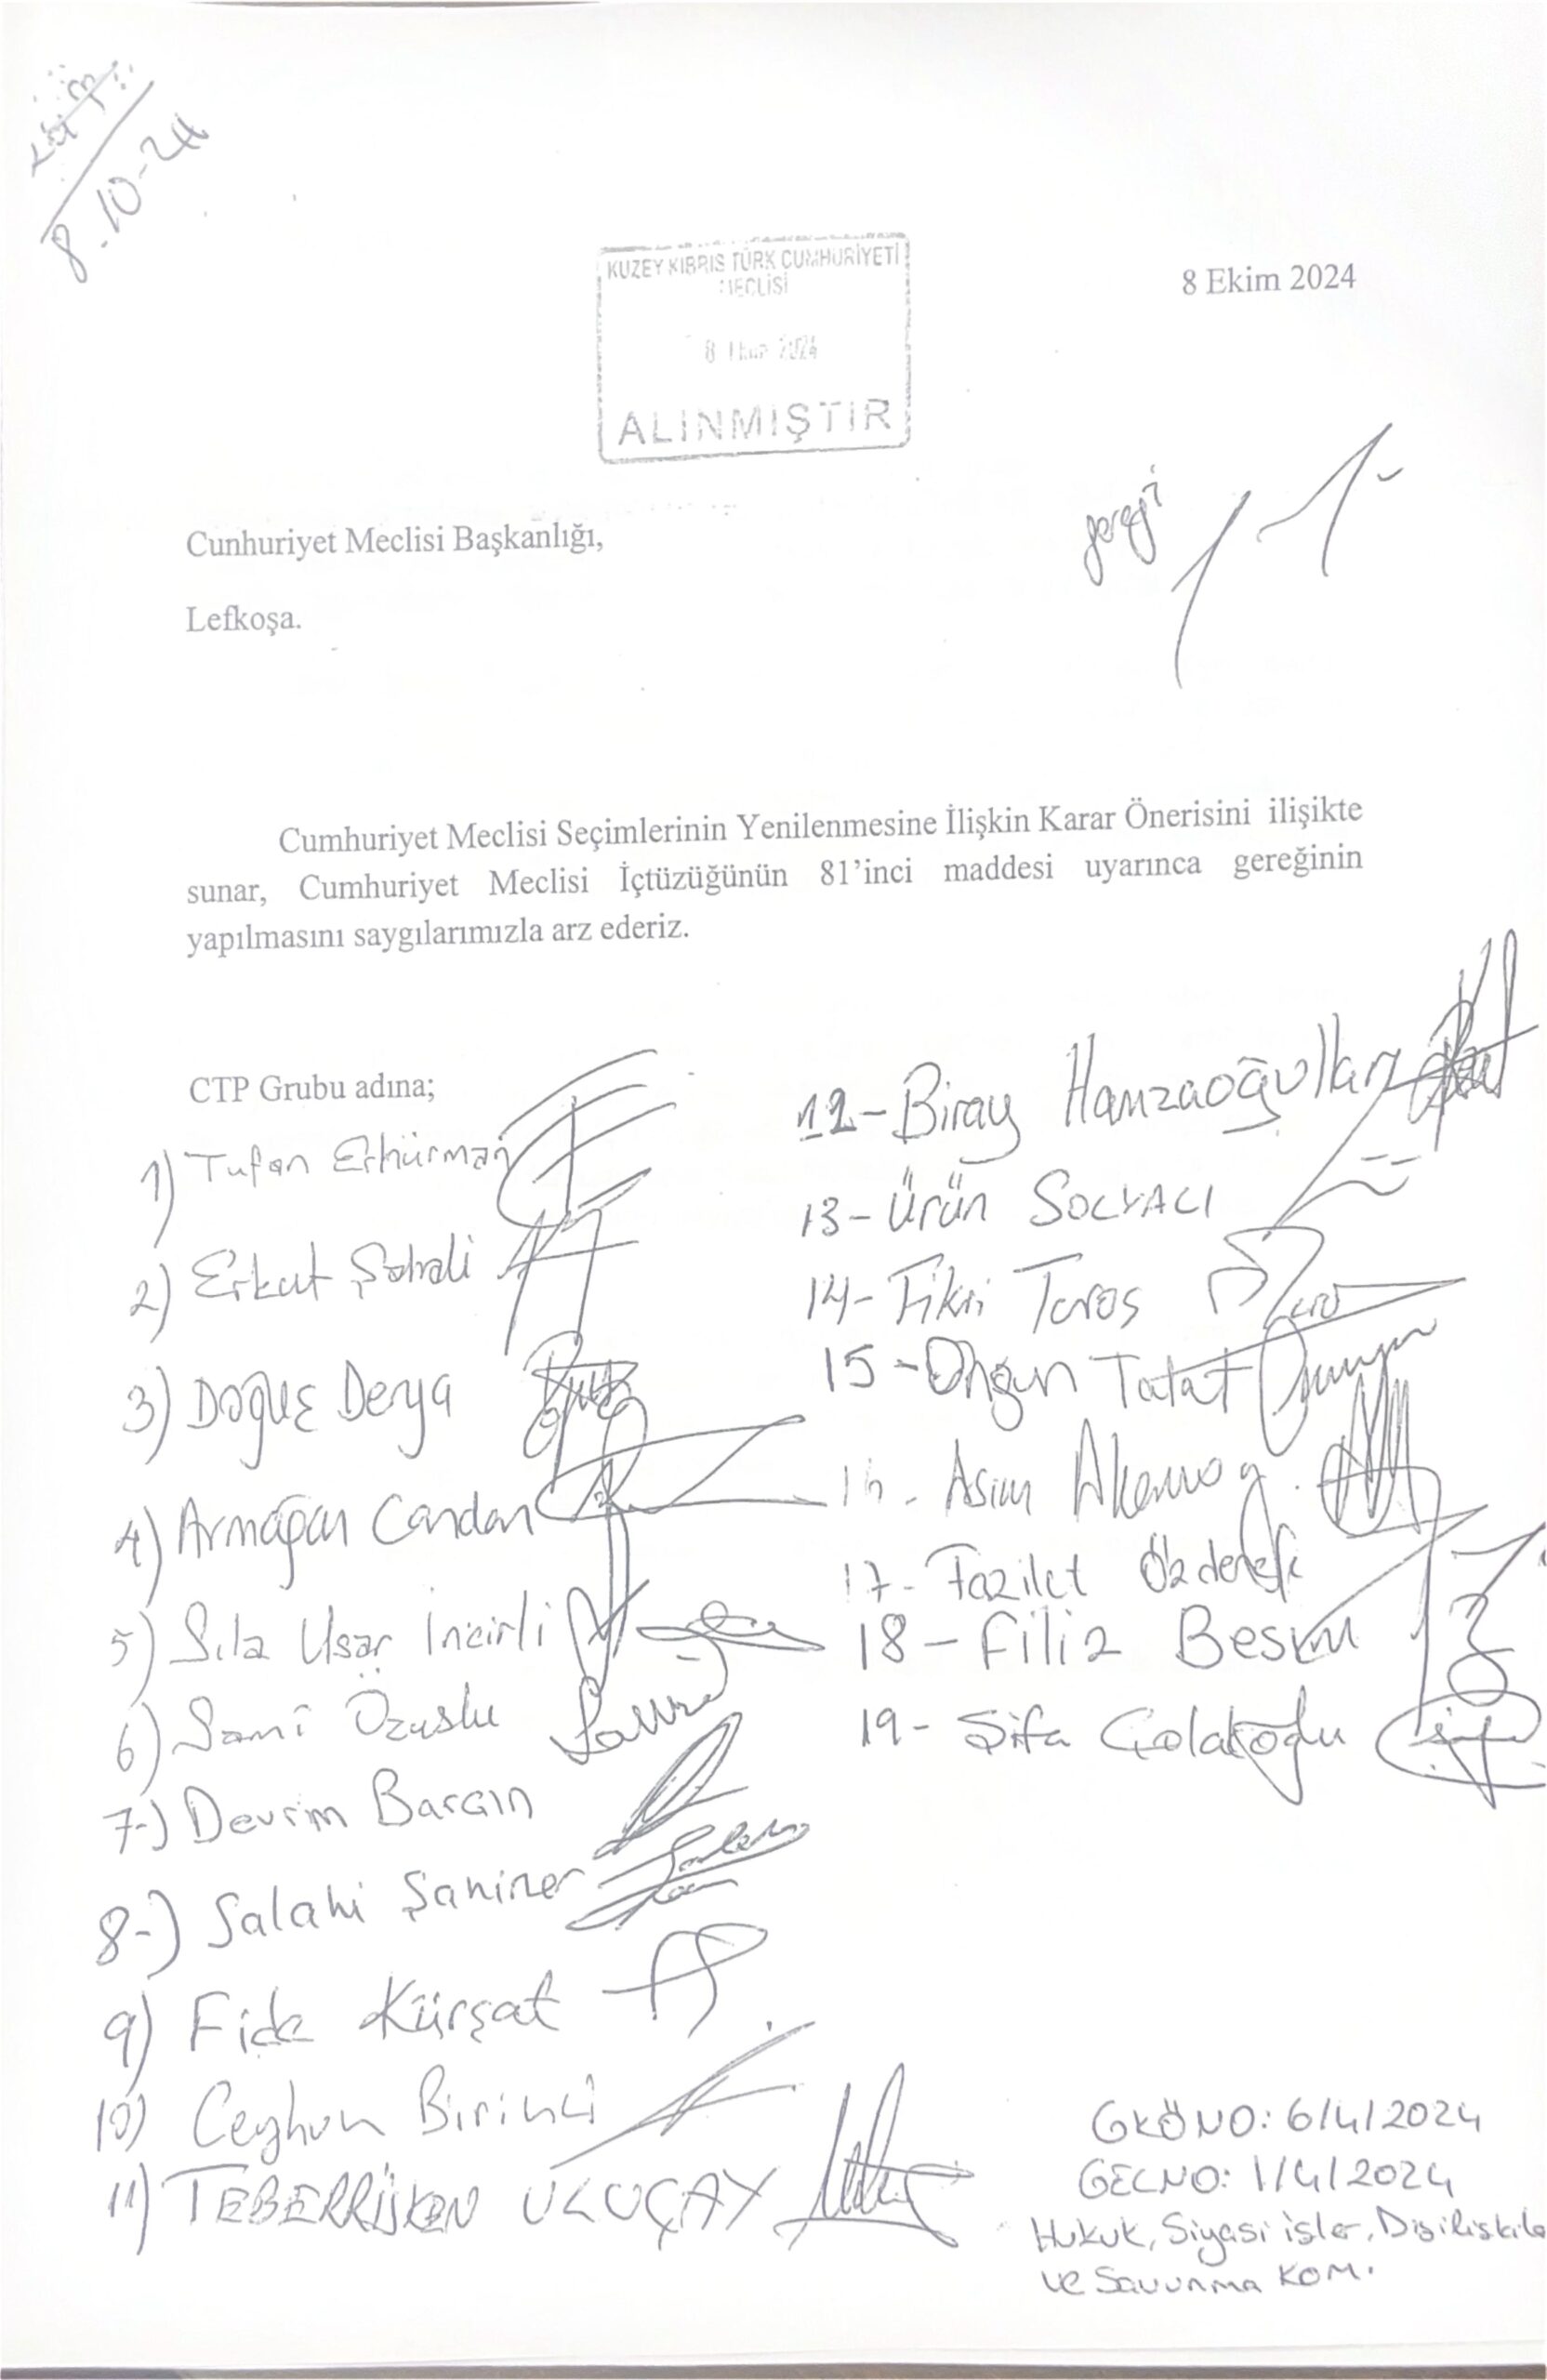 8-10-24
KUZEY KIBRIS TÜRK CUMHURİYETİ
MECLİSİ
8 Ekim 2024
ALINMIŞTIR
8 Ekim 2024
gereği
Cunhuriyet Meclisi Başkanlığı,
Lefkoşa.
Cumhuriyet Meclisi Seçimlerinin Yenilenmesine İlişkin Karar Önerisini ilişikte
sunar, Cumhuriyet Meclisi İçtüzüğünün 81'inci maddesi uyarınca gereğinin
yapılmasını saygılarımızla arz ederiz.
CTP Grubu adına;
1) Tufan Erhürman
2) Erkut Şahali
3) Doğuş Derya
4) Armağan Candan
5) Sıla Usar İncirli
6) Sami Özuslu
7-) Devrim Barçın
8-) Salahi Şahiner
9) Fide Kürşat
10) Ceyhun Birinci
11) TEBERRÜKEN ULUÇAY
12- Biray Hamzaoğulları
13- Ürün SOLYACI
14- Fikri Toros
15- Ongun Talat
16- Asım Akansoy
17- Fazilet Özdenefe
18- Filiz Besim
19- Şifa Çolakoğlu
GKÖNO: 6/4/2024
GECNO: 1/4/2024
Hukuk, Siyasi İşler, Dışilişkile
ve Savunma KOM.